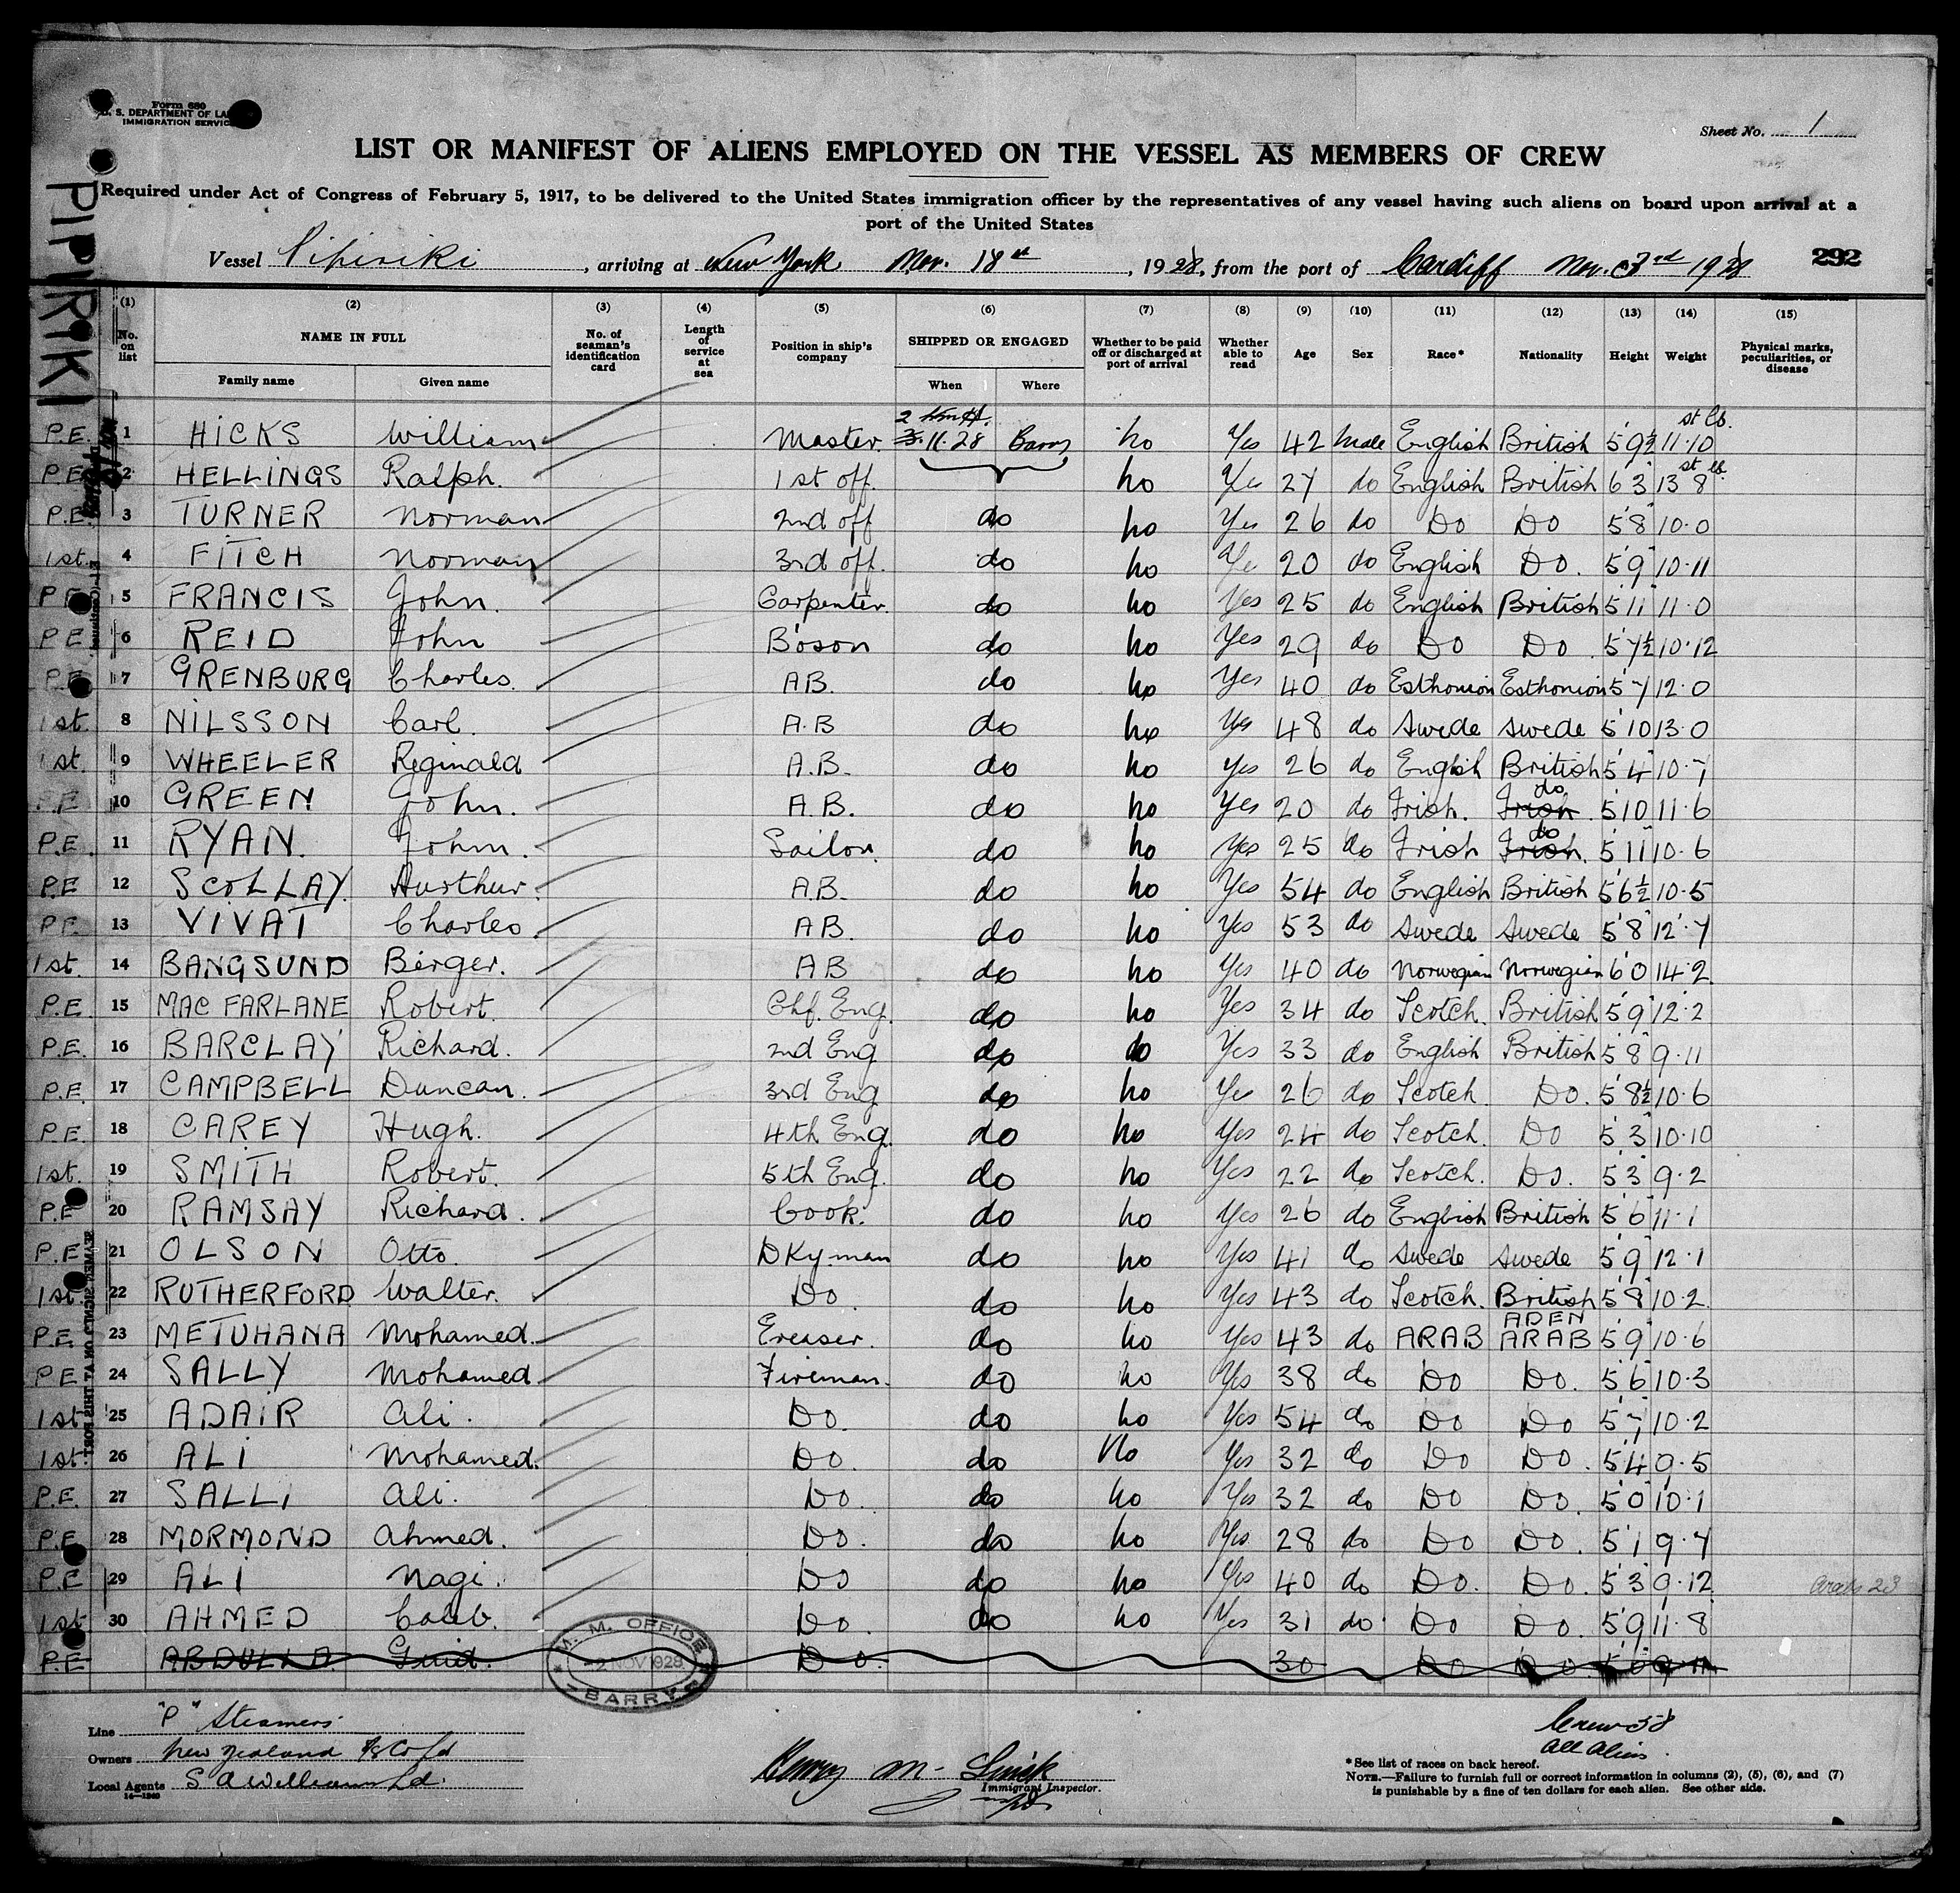 Form 680
U. S. DEPARTMENT OF LA
IMMIGRATION SERVIC
Sheet No. 1
LIST OR MANIFEST OF ALIENS EMPLOYED ON THE VESSEL AS MEMBERS OF CREW
Required under Act of Congress of February 5, 1917, to be delivered to the United States immigration officer by the representatives of any vessel having such aliens on board upon arrival at a
port of the United States
PIPIRIKI
Vessel Pipiriki, arriving at New York Nov. 18th, 1928, from the port of Cardiff Nov. 3rd 1928 292
(1) (2) (3) (4) (5) (6) (7) (8) (9) (10) (11) (12) (13) (14) (15)
No. on list NAME IN FULL No. of seaman's identification card Length of service at sea Position in ship's company SHIPPED OR ENGAGED Whether to be paid off or discharged at port of arrival Whether able to read Age Sex Race* Nationality Height Weight Physical marks, peculiarities, or disease
Family name Given name When Where
st lb.
P.E. 1 HICKS William Master 2 3.11.28 Barry no Yes 42 male English British 5'9½ 11.10
st lb.
P.E. 2 HELLINGS Ralph. 1st off. no Yes 27 do English British 6'3" 13.8
P.E. 3 TURNER Norman 2nd off do no Yes 26 do Do Do 5'8" 10.0
1st. 4 FITCH Norman 3rd off. do no Ye 20 do English Do. 5'9" 10.11
P.E 5 FRANCIS John. Carpenter. do no Yes 25 do English British 5'11" 11.0
P.E 6 REID John Bo'son do no Yes 29 do Do Do 5'7½ 10.12
P.E 7 GRENBURG Charles. AB. do no Yes 40 do Esthonian Esthonian 5'7 12.0
1st. 8 NILSSON Carl. A.B do no Yes 48 do Swede Swede 5'10 13.0
1st. 9 WHEELER Reginald A.B. do no Yes 26 do English British 5'4" 10.7
P.E 10 GREEN John. A.B. do no Yes 20 do Irish. Irish do 5'10 11.6
P.E. 11 RYAN. John. Sailor. do no Yes 25 do Irish Irish. do 5'11" 10.6
P.E 12 SCOLLAY. Aurthur. A.B. do no Yes 54 do English British 5'6½ 10.5
P.E. 13 VIVAT Charles AB. do no Yes 53 do Swede Swede 5'8" 12.7
1st. 14 BANGSUND Berger. AB do no Yes 40 do Norwegian Norwegian 6'0" 14.2
P.E. 15 MAC FARLANE Robert. Chf. Eng. do no Yes 34 do Scotch. British 5'9" 12.2
P.E. 16 BARCLAY Richard. 2nd Eng do do Yes 33 do English British 5'8" 9.11
P.E. 17 CAMPBELL Duncan. 3rd Eng do no Yes 26 do Scotch Do. 5'8½ 10.6
P.E. 18 CAREY Hugh. 4th Eng. do no Yes 24 do Scotch. Do 5'3" 10.10
1st. 19 SMITH Robert. 5th Eng. do no Yes 22 do Scotch. Do. 5'3" 9.2
P.E 20 RAMSAY Richard. Cook. do no Yes 26 do English British 5'6" 11.1
P.E. 21 OLSON Otto. DKyman do no Yes 41 do Swede Swede 5'9" 12.1
1st. 22 RUTHERFORD Walter. Do do no Yes 43 do Scotch. British 5'8" 10.2
P.E. 23 METUHANA Mohamed. Greaser. do no Yes 43 do ARAB ADEN ARAB 5'9" 10.6
P.E 24 SALLY Mohamed Fireman. do no Yes 38 do Do Do. 5'6" 10.3
1st. 25 ADAIR Ali. Do. do no Yes 54 do Do Do 5'7 10.2
1st. 26 ALI Mohamed. Do. do No Yes 32 do Do Do. 5'4" 9.5
P.E. 27 SALLI Ali. Do. do no Yes 32 do Do Do. 5'0" 10.1
P.E 28 MORMOND Ahmed. Do. do no Yes 28 do Do Do. 5'1 9.7
P.E 29 ALI Nagi. Do do no Yes 40 do Do. Do. 5'3" 9.12 Arabs 23
1st. 30 AHMED Caleb. Do. do no Yes 31 do Do Do. 5'9" 11.8
P.E ABDULLA Do. 30 Do Do
M. M. OFFICE
2 NOV 1928
BARRY
SEAMEN SIGNED ON AT THIS PORT.
Line "P" Steamers.
Owners New Zealand S/S Co Ld
Local Agents S A Williams Ld.
14—1240
Henry M.
Immigrant Inspector.
Crew 58
All Aliens.
*See list of races on back hereof.
NOTE.—Failure to furnish full or correct information in columns (2), (5), (6), and (7)
is punishable by a fine of ten dollars for each alien. See other side.